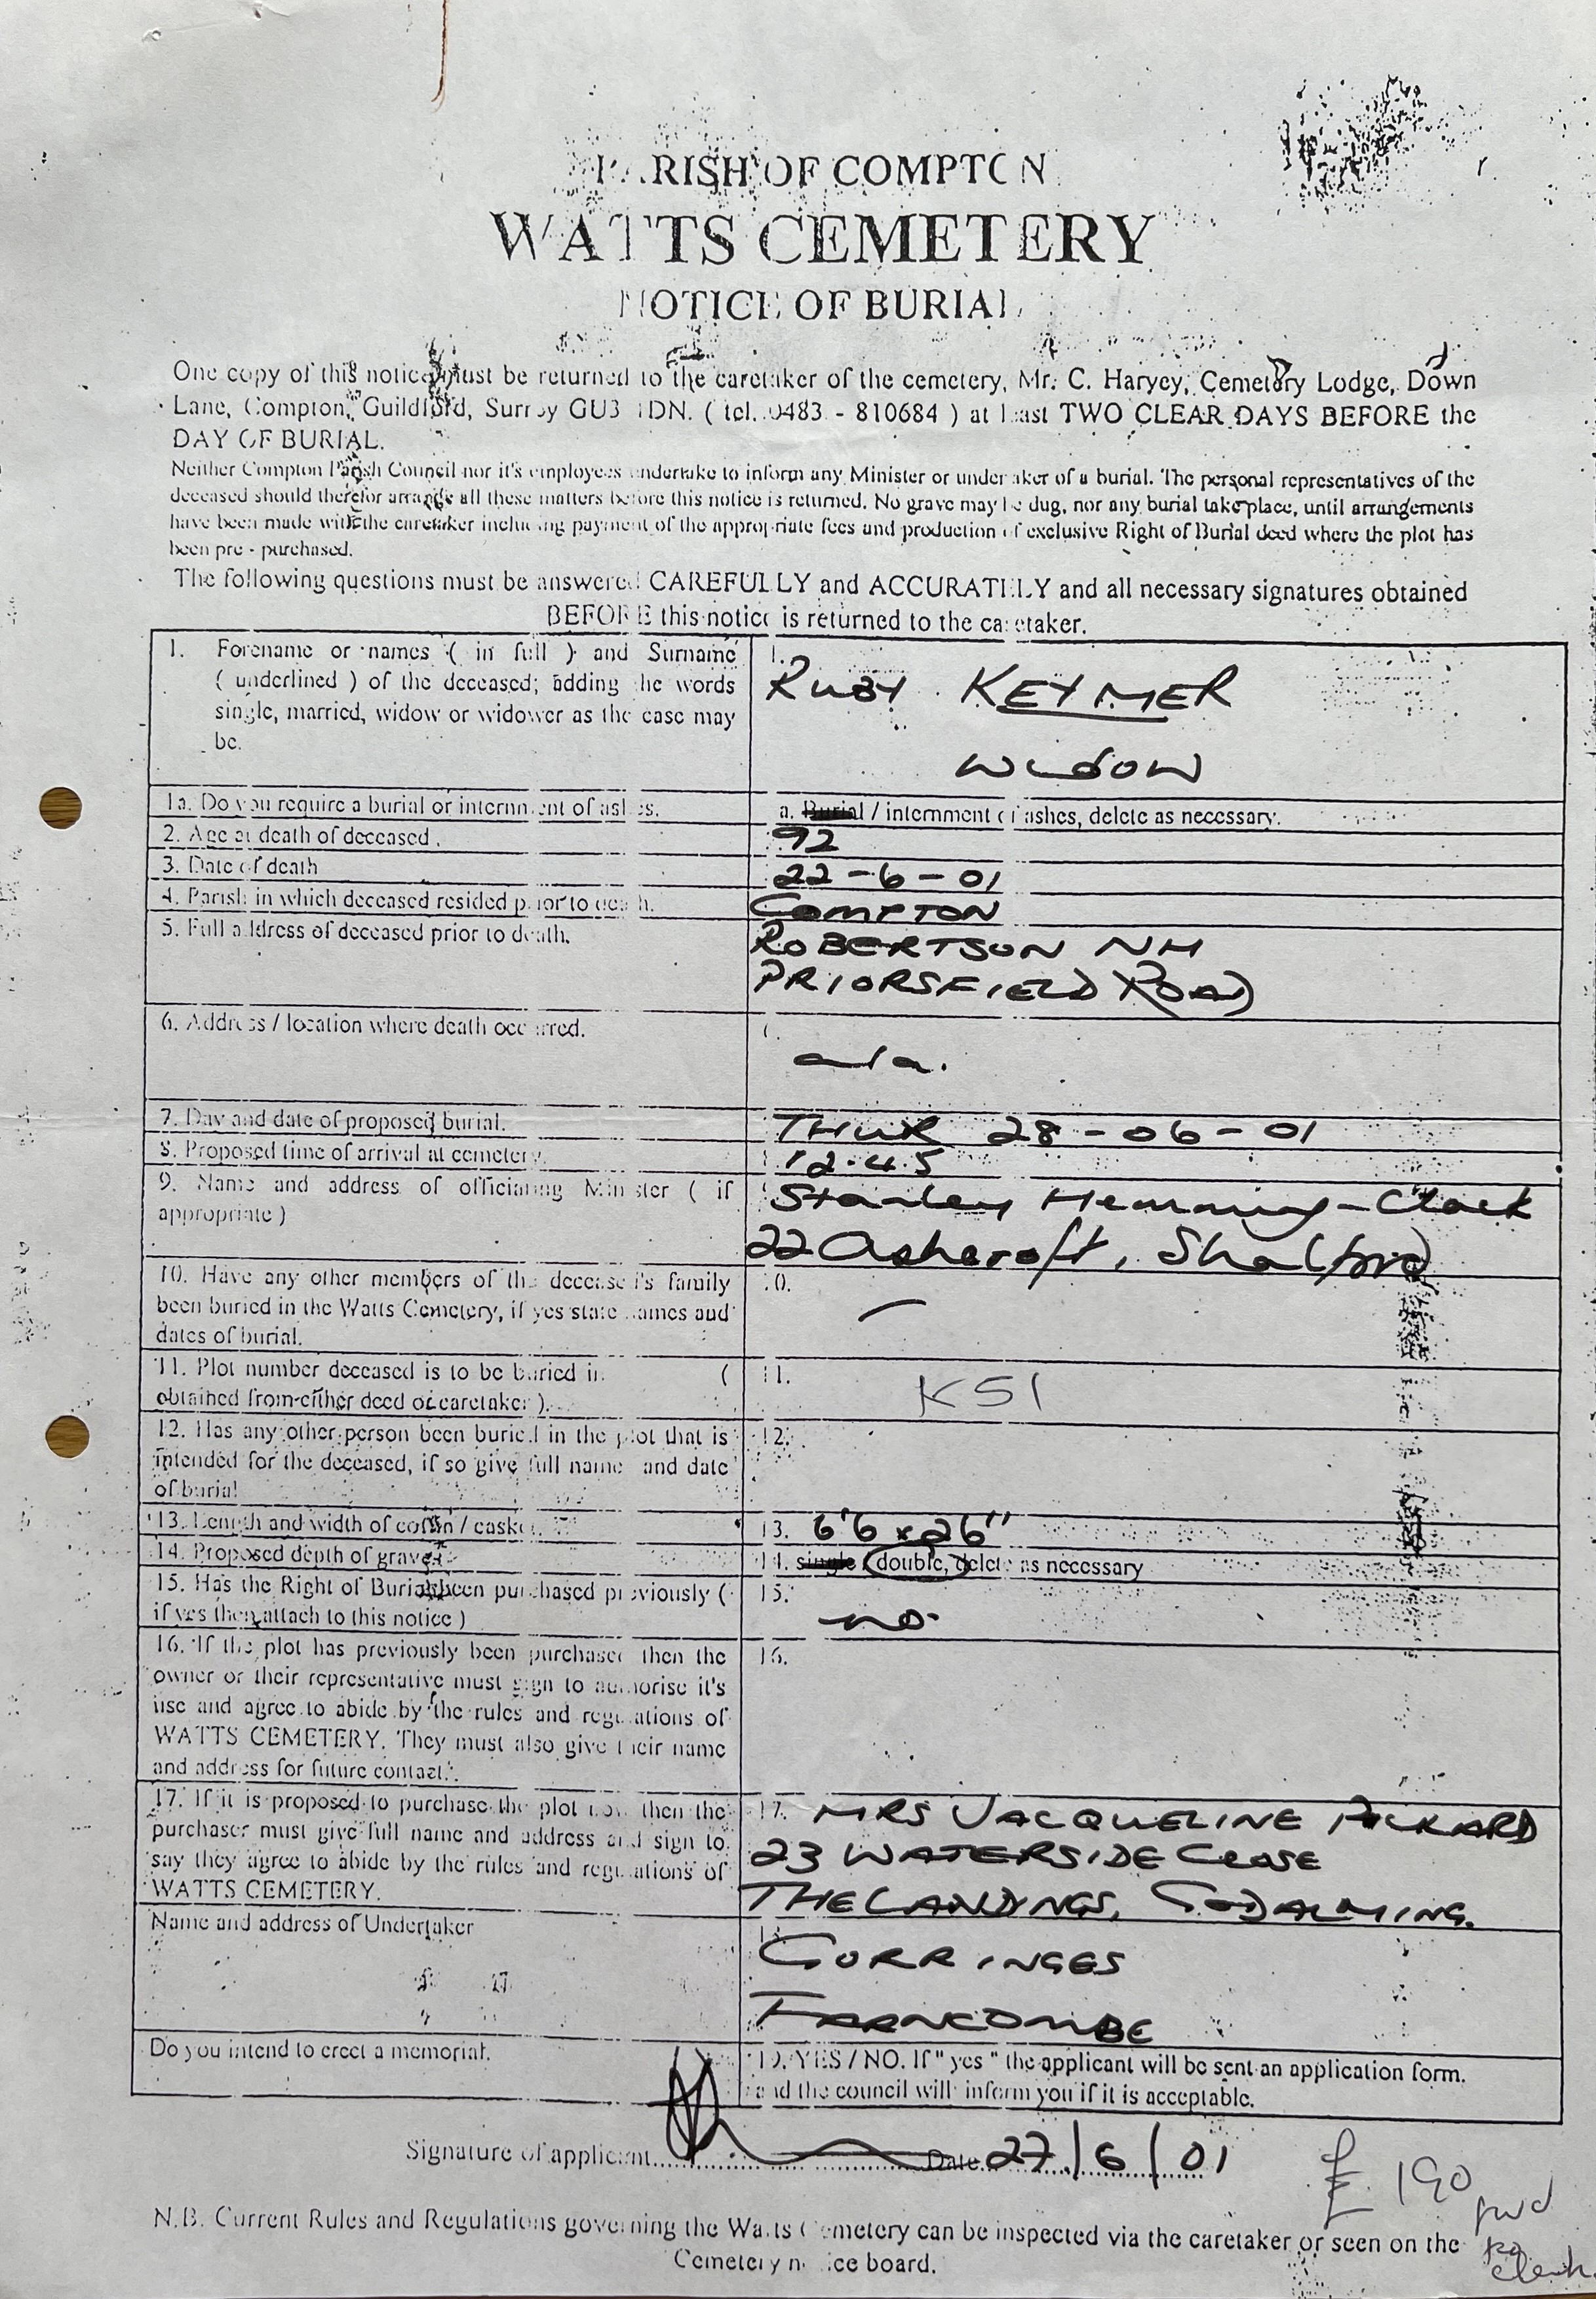 PARISH OF COMPTON
WATTS CEMETERY
NOTICE OF BURIAL
One copy of this notice must be returned to the caretaker of the cemetery, Mr. C. Harvey, Cemetery Lodge, Down
Lane, Compton, Guildford, Surrey GU3 1DN. ( tel. 0483 - 810684 ) at least TWO CLEAR DAYS BEFORE the
DAY OF BURIAL.
Neither Compton Parish Council nor it's employees undertake to inform any Minister or undertaker of a burial. The personal representatives of the
deceased should therefor arrange all these matters before this notice is returned. No grave may be dug, nor any burial take place, until arrangements
have been made with the caretaker including payment of the appropriate fees and production of exclusive Right of Burial deed where the plot has
been pre - purchased.
The following questions must be answered CAREFULLY and ACCURATELY and all necessary signatures obtained
BEFORE this notice is returned to the caretaker.
1. Forename or names ( in full ) and Surname
( underlined ) of the deceased; adding the words
single, married, widow or widower as the case may
be.
1.
RUBY KEYMER
WIDOW
1a. Do you require a burial or internment of ashes.
a. Burial / internment of ashes, delete as necessary.
2. Age at death of deceased.
92
3. Date of death
22-6-01
4. Parish in which deceased resided prior to death.
COMPTON
5. Full address of deceased prior to death.
ROBERTSON NH
PRIORSFIELD ROAD
6. Address / location where death occurred.
a/a.
7. Day and date of proposed burial.
THUR 28-06-01
8. Proposed time of arrival at cemetery.
12.45
9. Name and address of officiating Minister ( if
appropriate )
Stanley Hemming-Clark
22 Ashcroft, Shalford
10. Have any other members of the deceased's family
been buried in the Watts Cemetery, if yes state names and
dates of burial.
10.
—
11. Plot number deceased is to be buried in (
obtained from either deed or caretaker ).
11.
K51
12. Has any other person been buried in the plot that is
intended for the deceased, if so give full name and date
of burial
12.
13. Length and width of coffin / casket.
13. 6'6 x 26"
14. Proposed depth of grave.
14. single / double, delete as necessary
15. Has the Right of Burial been purchased previously (
if yes then attach to this notice )
15.
no.
16. If the plot has previously been purchased then the
owner or their representative must sign to authorise it's
use and agree to abide by the rules and regulations of
WATTS CEMETERY. They must also give their name
and address for future contact.
16.
17. If it is proposed to purchase the plot now then the
purchaser must give full name and address and sign to
say they agree to abide by the rules and regulations of
WATTS CEMETERY.
17. MRS JACQUELINE PICKARD
23 WATERSIDE CLOSE
THE LANDINGS, GODALMING.
Name and address of Undertaker
GORRINGES
FARNCOMBE
Do you intend to erect a memorial.
19. YES / NO. If " yes " the applicant will be sent an application form.
and the council will inform you if it is acceptable.
Signature of applicant Date 27/6/01
£190
fwd
to
clerk.
N.B. Current Rules and Regulations governing the Watts Cemetery can be inspected via the caretaker or seen on the
Cemetery notice board.